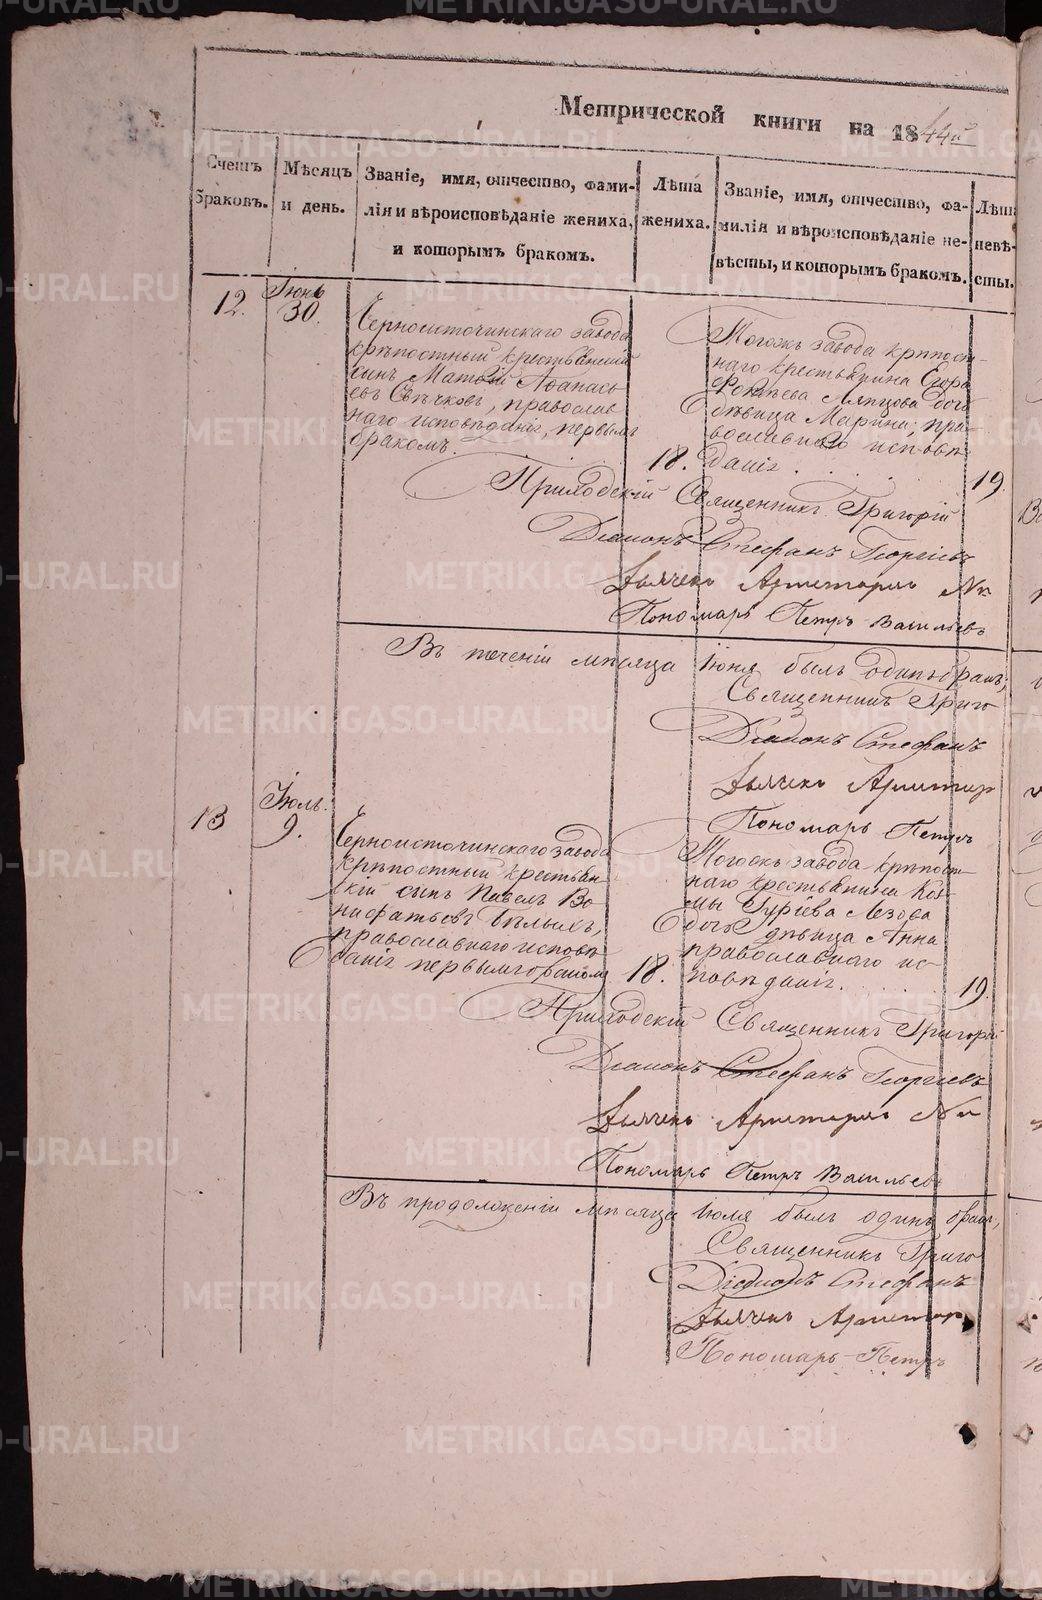 Метрической книги на 1844й
Счетъ браковъ.
Мѣсяцъ и день.
Званіе, имя, отчество, фами-
лія и вѣроисповѣданіе жениха,
и которымъ бракомъ.
Лѣта
жениха.
Званіе, имя, отчество, фа-
милія и вѣроисповѣданіе не-
вѣсты, и которымъ бракомъ.
Лѣта
невѣ-
сты.
12.
Іюнь
30.
Черноисточинскаго завода
крѣпостный крестьянскій
сынъ Матвѣй Аѳанась
евъ Свѣчковъ, православ
наго исповѣданія, первымъ
бракомъ.
18.
Тогожъ завода крѣпост-
наго крестьянина Егора
Ляпцова дочь
дѣвица Марина, пра-
вославнаго исповѣ
данія.
19.
Приходскій Священникъ Григорій
Діаконъ Стефанъ Георгіевъ
Дьячекъ Аристархъ Ни
Пономарь Петръ Васильевъ
Въ теченіи мѣсяца Іюня былъ одинъ бракъ,
Священникъ Григо
Діаконъ Стефанъ
Дьячекъ Аристар
Пономарь Петръ
13
Іюль.
9.
Черноисточинскаго завода
крѣпостный крестьян
скій сынъ Павелъ Во
нифатьевъ Бѣлыхъ,
православнаго исповѣ
данія первымъ бракомъ
18.
Тогожъ завода крѣпост-
наго крестьянина Коз-
мы Гуріева Лезова
дочь дѣвица Анна
православнаго ис-
повѣданія.
19.
Приходскій Священникъ Григорій
Діаконъ Стефанъ Георгіевъ
Дьячекъ Аристархъ Ни
Пономарь Петръ Васильев
Въ продолженіи мѣсяца Іюля былъ одинъ бракъ,
Священникъ Григо
Діаконъ Стефанъ
Дьячекъ Аристар
Пономарь Петръ
METRIKI.GASO-URAL.RU